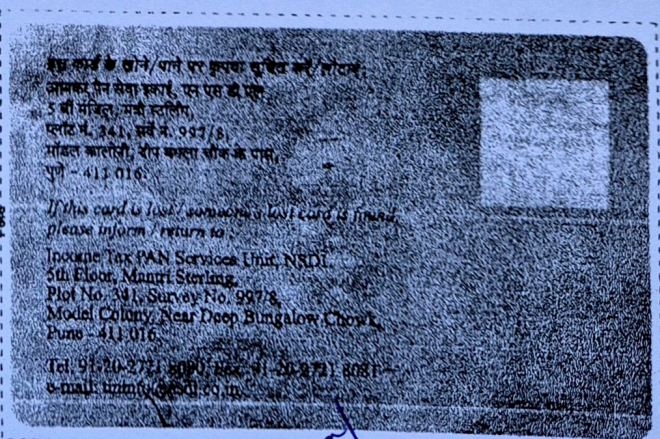 इस कार्ड के खोने/पाने पर कृपया सूचित करें/लौटाएं
आयकर पैन सेवा इकाई, एन एस डी एल
5 वी मंजिल, मंत्री स्टर्लिंग,
प्लॉट नं. 341, सर्वे नं. 997/8,
मॉडल कालोनी, दीप बंगला चौक के पास,
पुणे - 411 016.
If this card is lost / someone's lost card is found,
please inform / return to :
Income Tax PAN Services Unit, NSDL
5th Floor, Mantri Sterling,
Plot No. 341, Survey No. 997/8,
Model Colony, Near Deep Bungalow Chowk,
Pune - 411 016.
Tel: 91-20-2721 8080, Fax: 91-20-2721 8081
e-mail: tininfo@nsdl.co.in